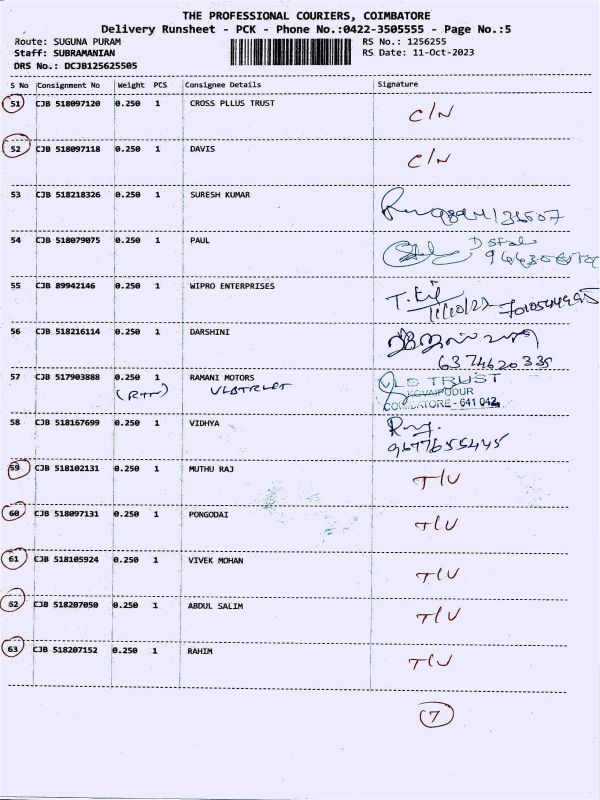 THE PROFESSIONAL COURIERS, COIMBATORE
Delivery Runsheet - PCK - Phone No.:0422-3505555 - Page No.:5
Route: SUGUNA PURAM RS No.: 1256255
Staff: SUBRAMANIAN RS Date: 11-Oct-2023
DRS No.: DCJB125625505
S No Consignment No Weight PCS Consignee Details Signature
51 CJB 518097120 0.250 1 CROSS PLLUS TRUST C/N
52 CJB 518097118 0.250 1 DAVIS C/N
53 CJB 518218326 0.250 1 SURESH KUMAR
54 CJB 518079075 0.250 1 PAUL
55 CJB 89942146 0.250 1 WIPRO ENTERPRISES
56 CJB 518216114 0.250 1 DARSHINI
6374620335
57 CJB 517903888 0.250 1 RAMANI MOTORS VLB TRUST
(RTN) VLBTRUST KOVAIPUDUR
COIMBATORE - 641 042
58 CJB 518167699 0.250 1 VIDHYA
9677655445
59 CJB 518102131 0.250 1 MUTHU RAJ T/U
60 CJB 518097131 0.250 1 PONGODAI T/U
61 CJB 518105924 0.250 1 VIVEK MOHAN T/U
62 CJB 518207050 0.250 1 ABDUL SALIM T/U
63 CJB 518207152 0.250 1 RAHIM T/U
7